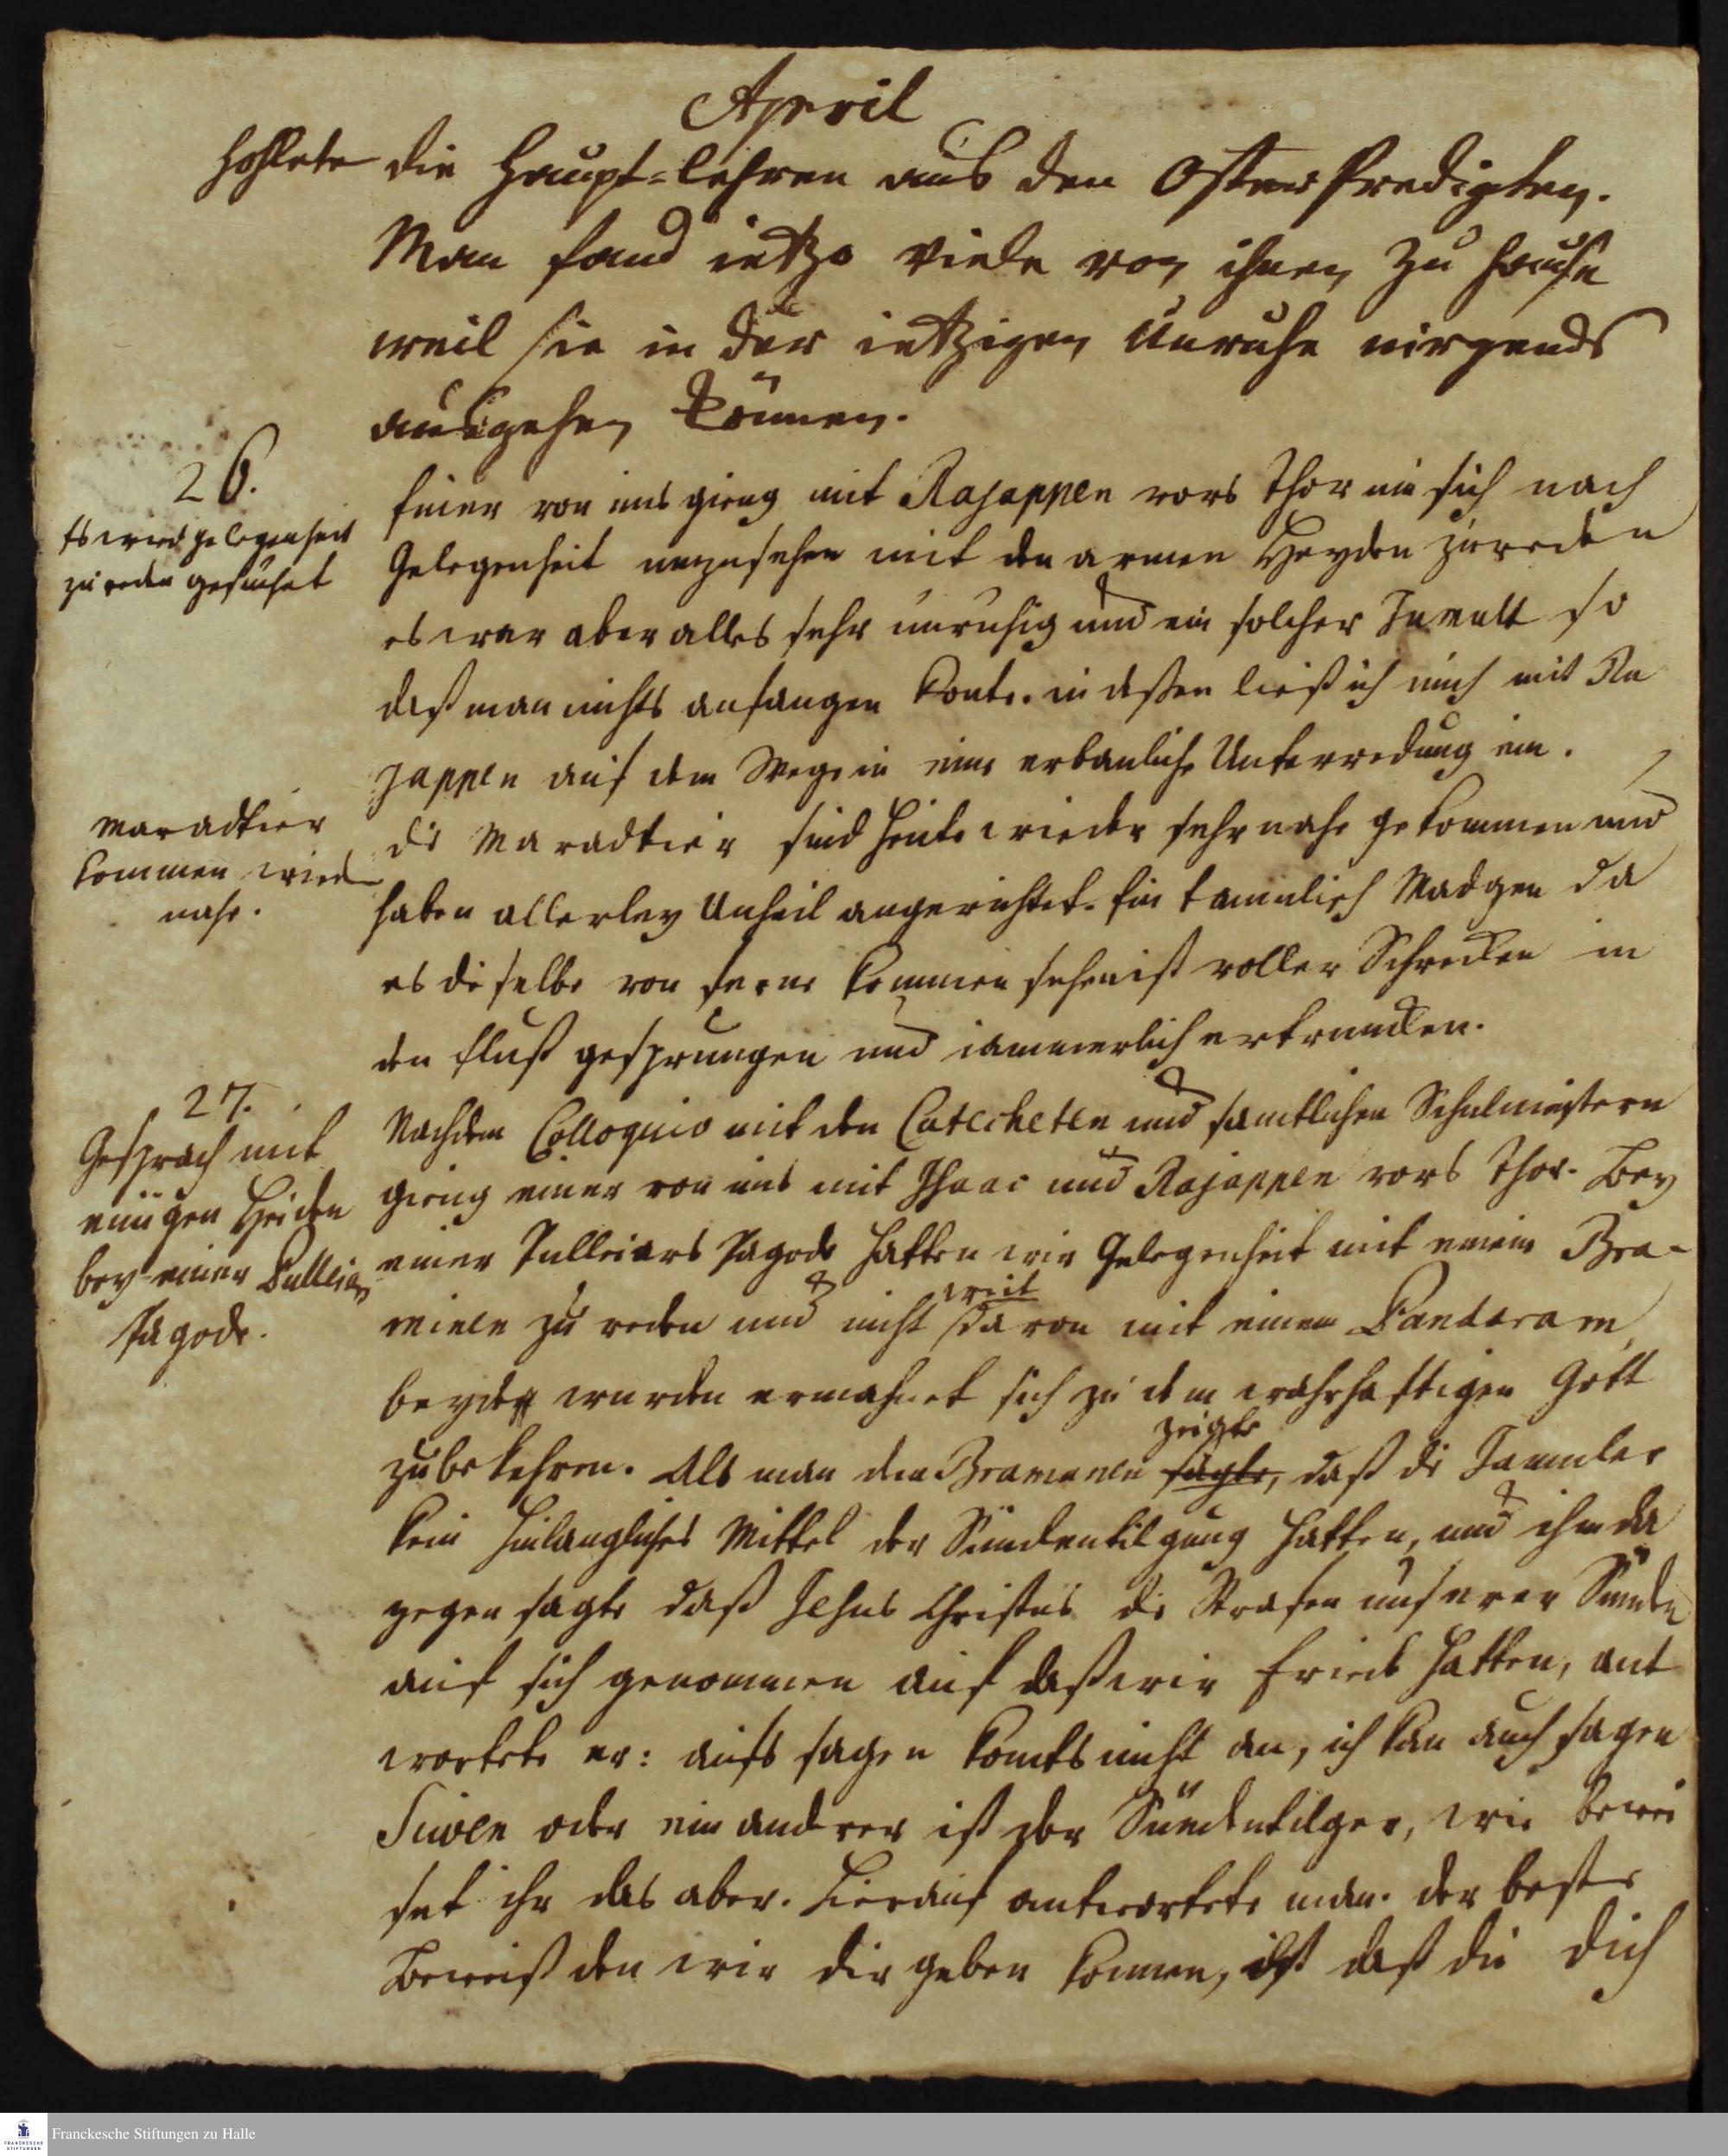 April
hohlete die Haupt=lehren aus den Oster Predigten.
Man fand ietzo viele von ihnen zu Hause
weil sie in der ietzigen Unruhe nirgends
ausgehen können.
26.
Es wird gelegenheit
zu reden gesuchet
Einer von uns gieng mit Rajappen vors Thor um sich nach
Gelegenheit umzusehen mit den armen Heyden zu reden
es war aber alles sehr unruhig und ein solcher Tumult so
daß man nichts anfangen konte. in deßen ließ ich mich mit Ra
jappen auf dem Wege in eine erbauliche Unterredung ein.
Maradtier
kommen wied
nahe.
die Maradtier sind heute wieder sehr nahe gekommen und
haben allerley Unheil angerichtet. Ein tamulisch Madgen da
es dieselbe von ferne kommen sehen ist voller Schrecken in
den Fluß gesprungen und iammerlich ertruncken.
27.
Gesprach mit
einigen Heiden
bey einer Pulleiar
Pagode.
Nachdem Colloquio mit den Catecheten und samtlichen Schulmeistern
gieng einer von uns mit Isaac und Rajappen vors Thor. Bey
einer Pulleiars Pagode hatten wir Gelegenheit mit einem Bra-
minen zu reden und nicht weit davon mit einem Pandaram,
beyde wurden ermahnet sich zu dem wahrhaftigen Gott
zu bekehren. Als man den Bramanen sagte, zeigte daß die Tamuler
kein hinlangliches Mittel der Sündentilgung hatten, und ihm da
gegen sagte daß Jesus Christus die Strafen unserer Sünden
auf sich genommen auf daß wir Friede hatten, ant
wortete er: aufs sagen komts nicht an, ich kan auch sagen
Siwen oder ein andrer ist der Sündentilger, wie bewei
set ihr das aber. Hierauf antwortete man. der beste
Beweiß den wir dir geben konnen, ist daß du dich
Franckesche Stiftungen zu Halle